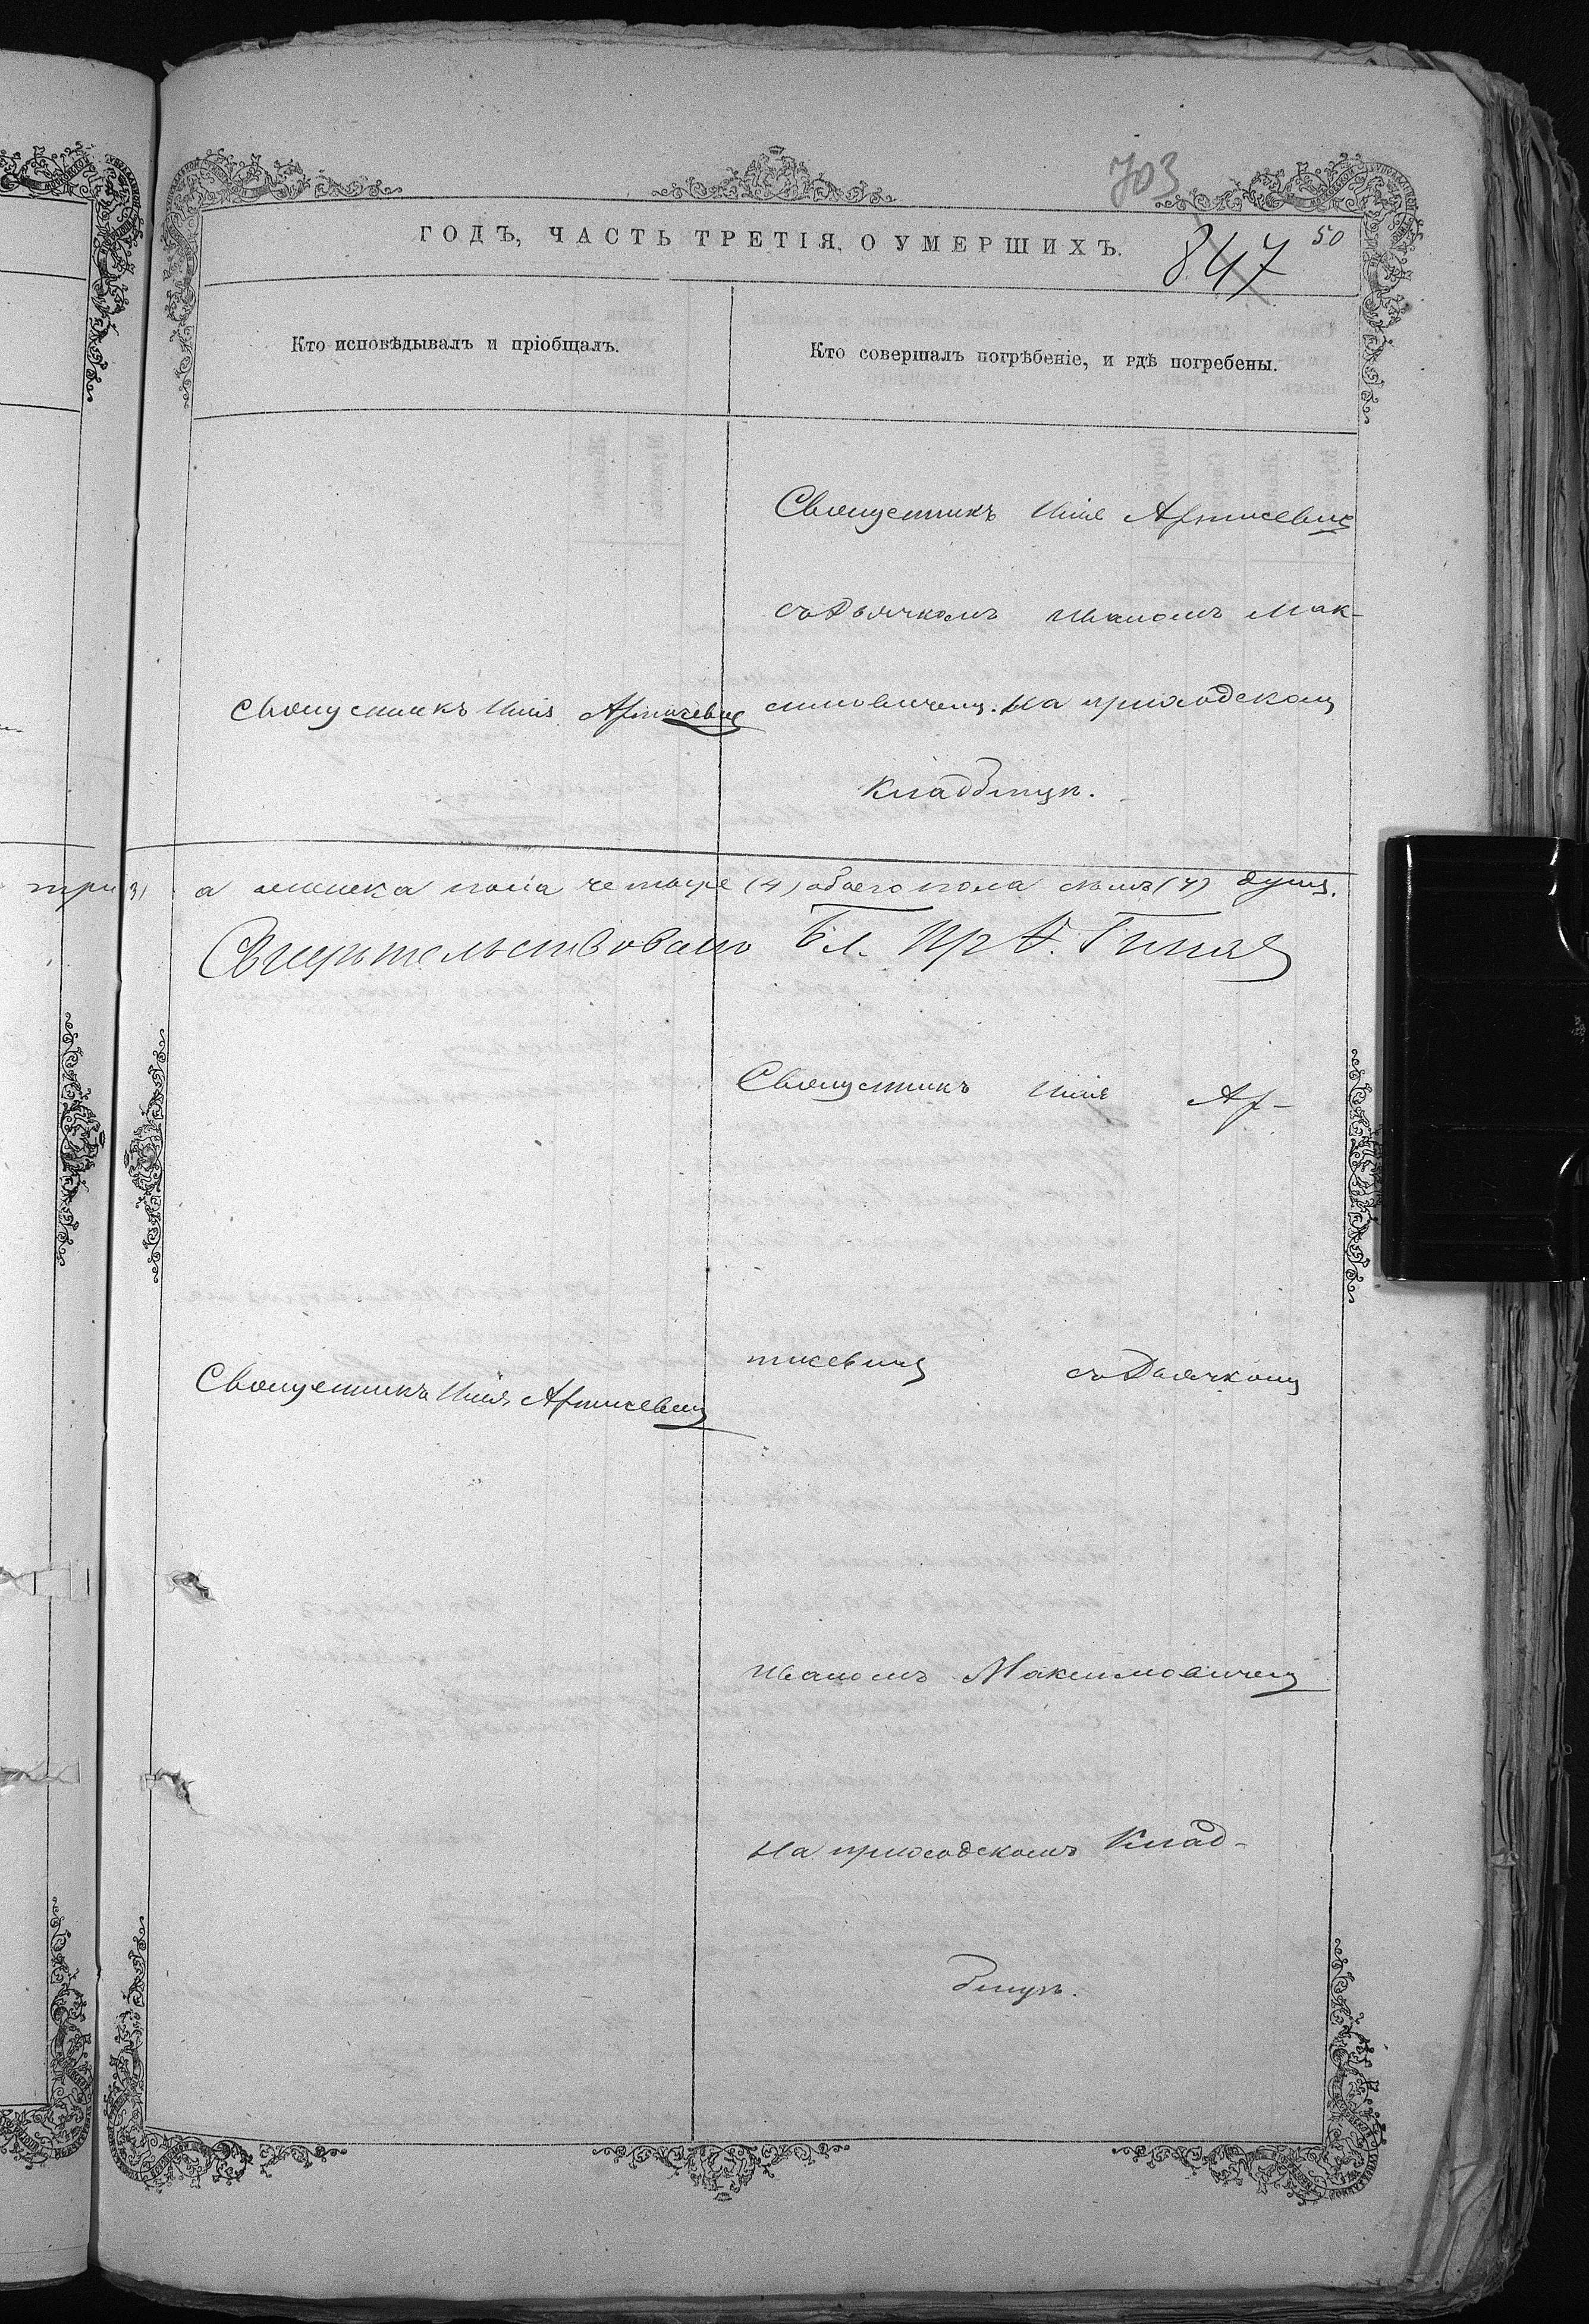 703
ГОДЪ, ЧАСТЬ ТРЕТІЯ, О УМЕРШИХЪ.
847
50
Кто исповѣдывалъ и пріобщалъ.
Кто совершалъ погрѣбеніе, и гдѣ погребены.
Священникъ Илія Артисевичъ
съ Дьячкомъ Иваномъ Мак-
симовичемъ. На приходскомъ
Кладбищѣ.
Священникъ Илія Артисевичъ
три (3) а женска пола четыре (4) обоего пола семь (7) душъ.
Свидѣтельствовалъ Бл. Пр.
Священникъ Илія Ар-
тисевичъ съ Дьячкомъ
Священникъ Илія Артисевичъ
Иваномъ Максимовичемъ
На приходскомъ Клад-
бищѣ.